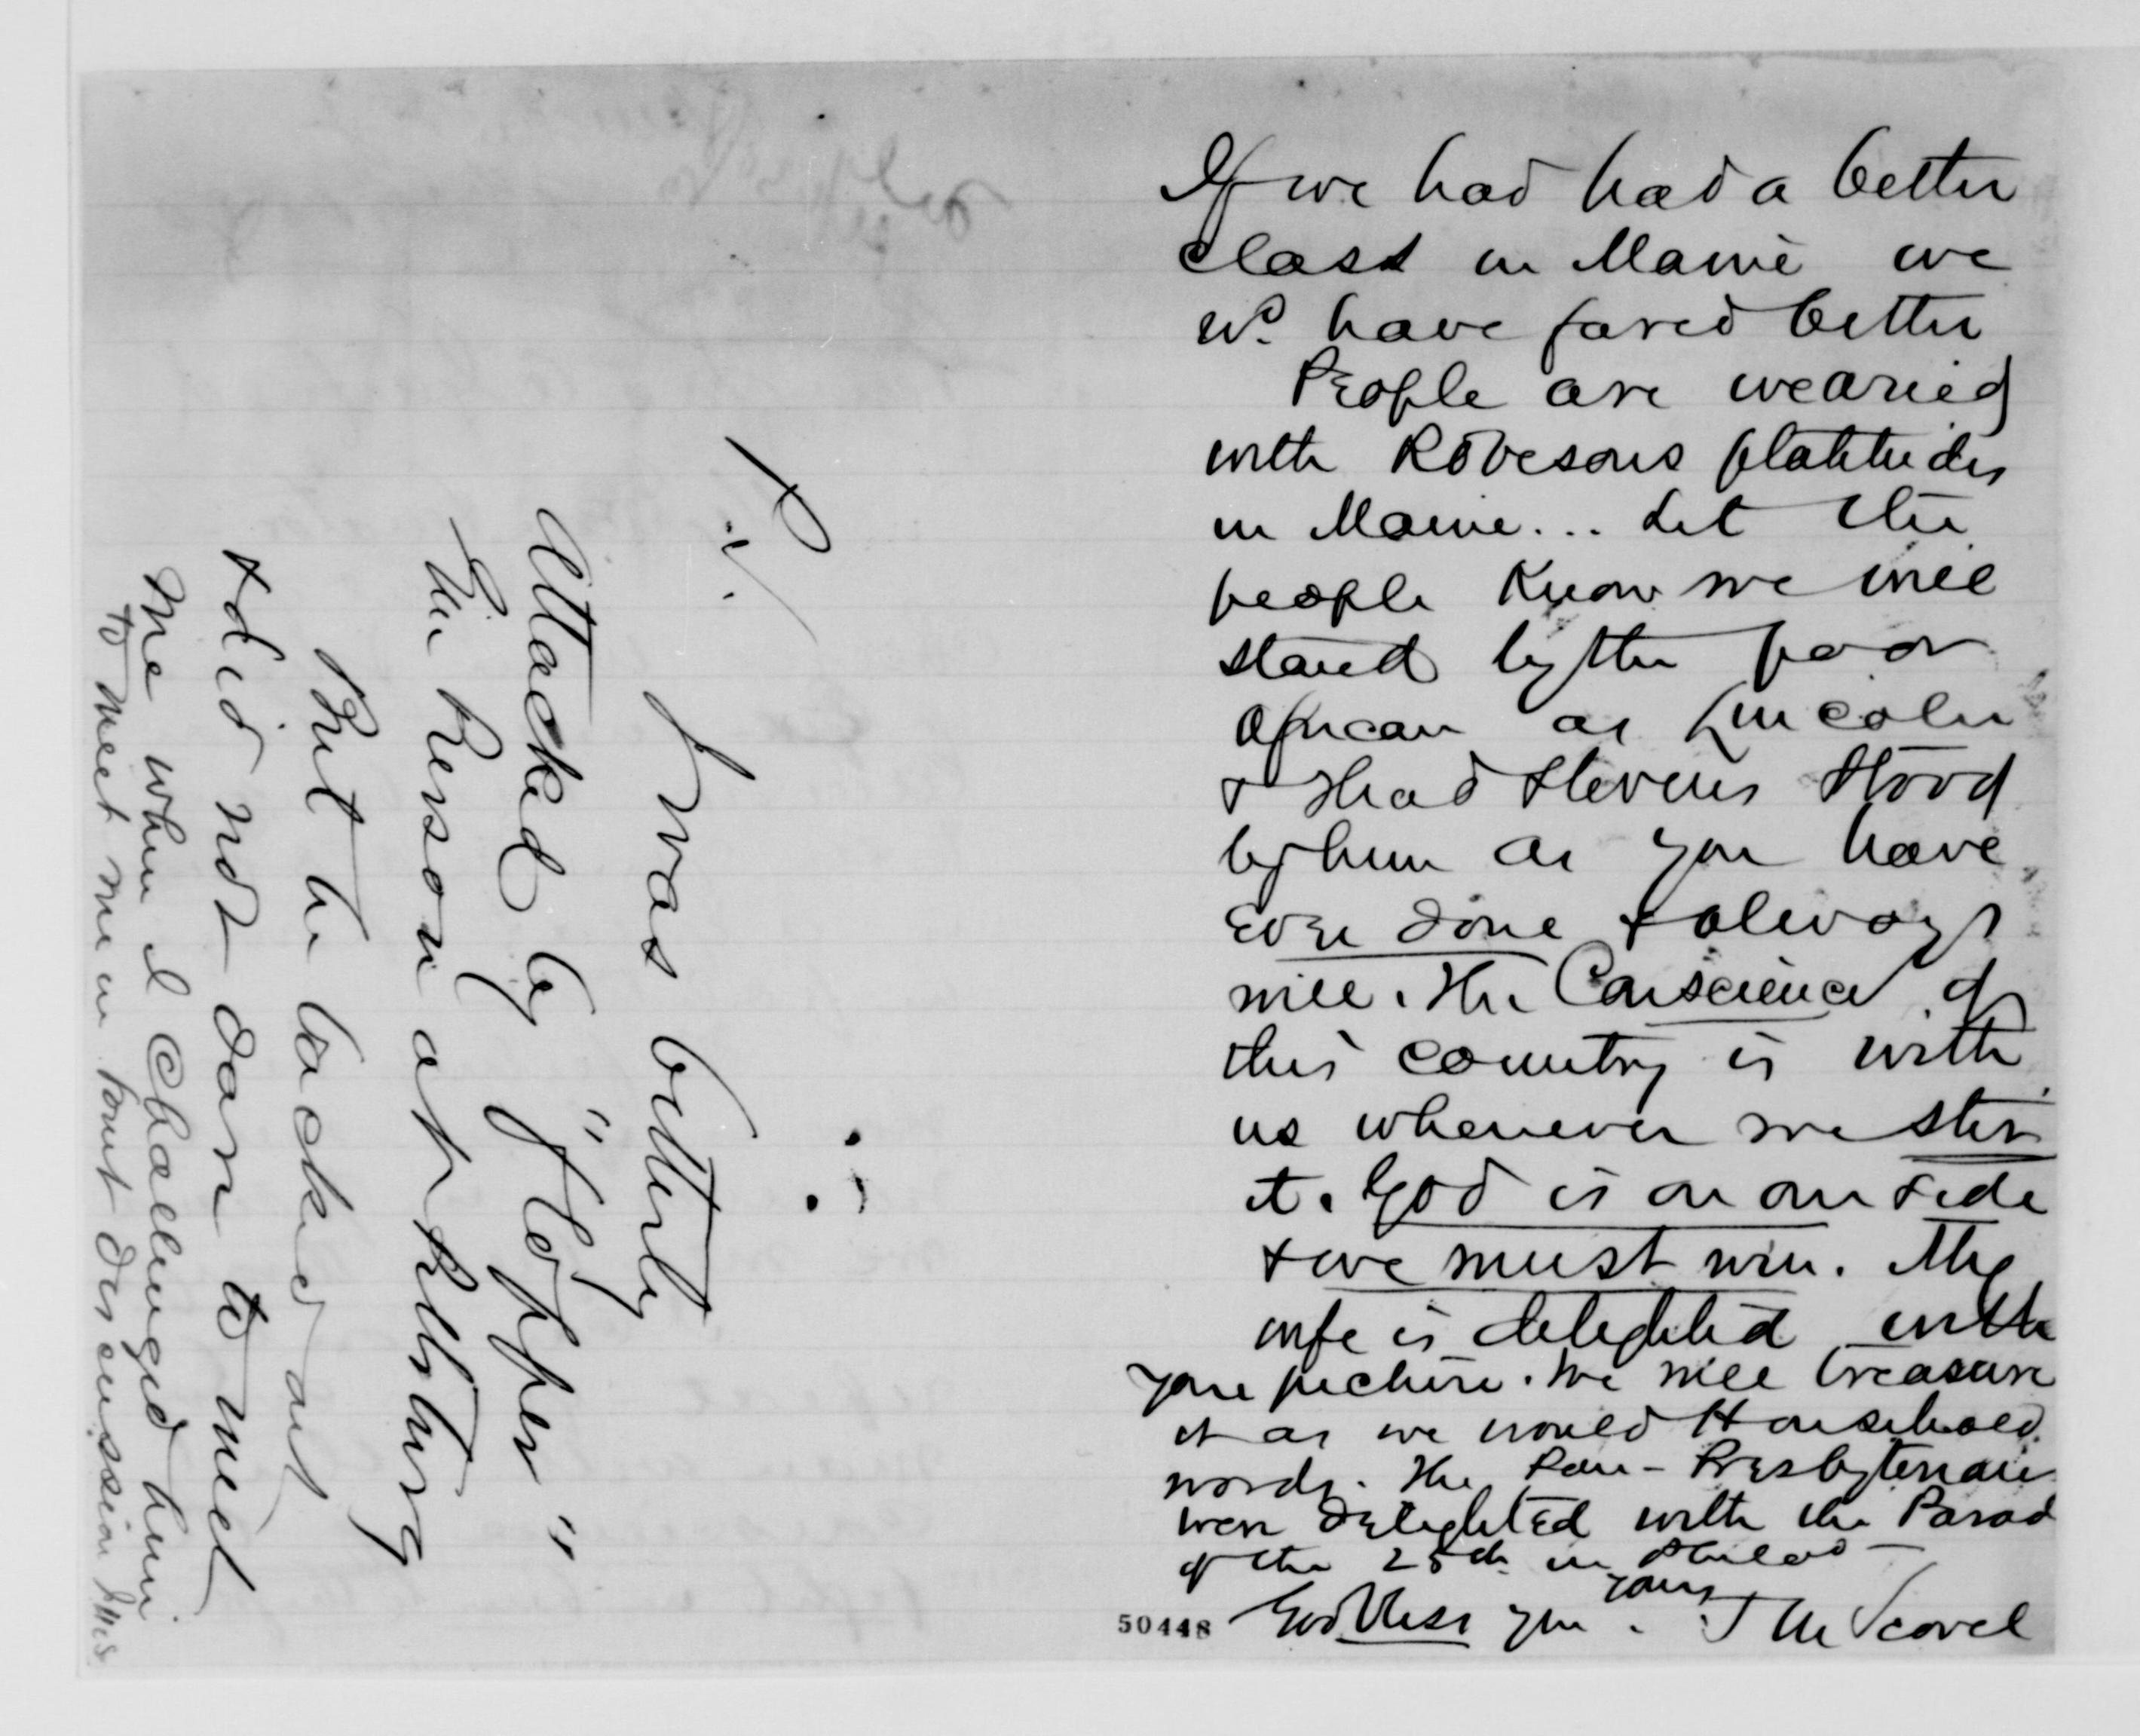 If we had had a better
class in Maine we
wd. have fared better
People are wearied
with Robesons platitudes
in Maine... Let the
people Know we will
stand by the poor
African as Lincoln
& Thad Stevens stood
by him as you have
ever done & always
will. The Conscience of
this country is with
us whenever we stir
it. God is on our side
& we must win. My
wife is delighted with
your picture. We will treasure
it as we would Household
words. The Pan-Presbyterians
were delighted with the Parad
of the 25th in Philad—
yours
God bless you. J M Scovel
50448
P.S.
I was bitterly
attacked by "flopper"
Em Rerson at Pittsburg
But he backed out
& did not dare to meet
me when I challenged him
to meet me in joint discussion JMS